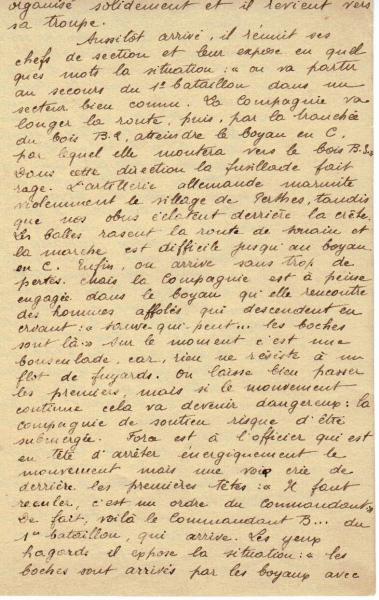 organisé solidement et il revient vers
sa troupe.
Aussitôt arrivé, il réunit ses
chefs de section et leur expose en quel
ques mots la situation : « on va partir
au secours du 1er bataillon dans un
secteur bien connu. La Compagnie va
longer la route, puis, par la tranchée
du bois B.2, atteindre le boyau en C,
par lequel elle montera vers le bois B.3 »
Dans cette direction la fusillade fait
rage. L'artillerie allemande marmite
violemment le village de Perthes, tandis
que nos obus éclatent derrière la crête.
Les balles rasent la route de Souain et
la marche est difficile jusqu'au boyau
en C. Enfin, on arrive sans trop de
pertes. Mais la Compagnie est à peine
engagée dans le boyau qu'elle rencontre
des hommes affolés qui descendent en
criant : « sauve-qui-peut... les boches
sont là » Sur le moment c'est une
bousculade, car, rien ne résiste à un
flot de fuyards. On laisse bien passer
les premiers, mais si le mouvement
continue cela va devenir dangereux : la
compagnie de soutien risque d'être
submergée. Force est à l'officier qui est
en tête d'arrêter énergiquement le
mouvement mais une voix crie de
derrière les premières têtes : « Il faut
reculer, c'est un ordre du Commandant »
De fait, voilà le Commandant B... du
1er bataillon, qui arrive. Les yeux
hagards il expose la situation : « les
boches sont arrivés par les boyaux avec